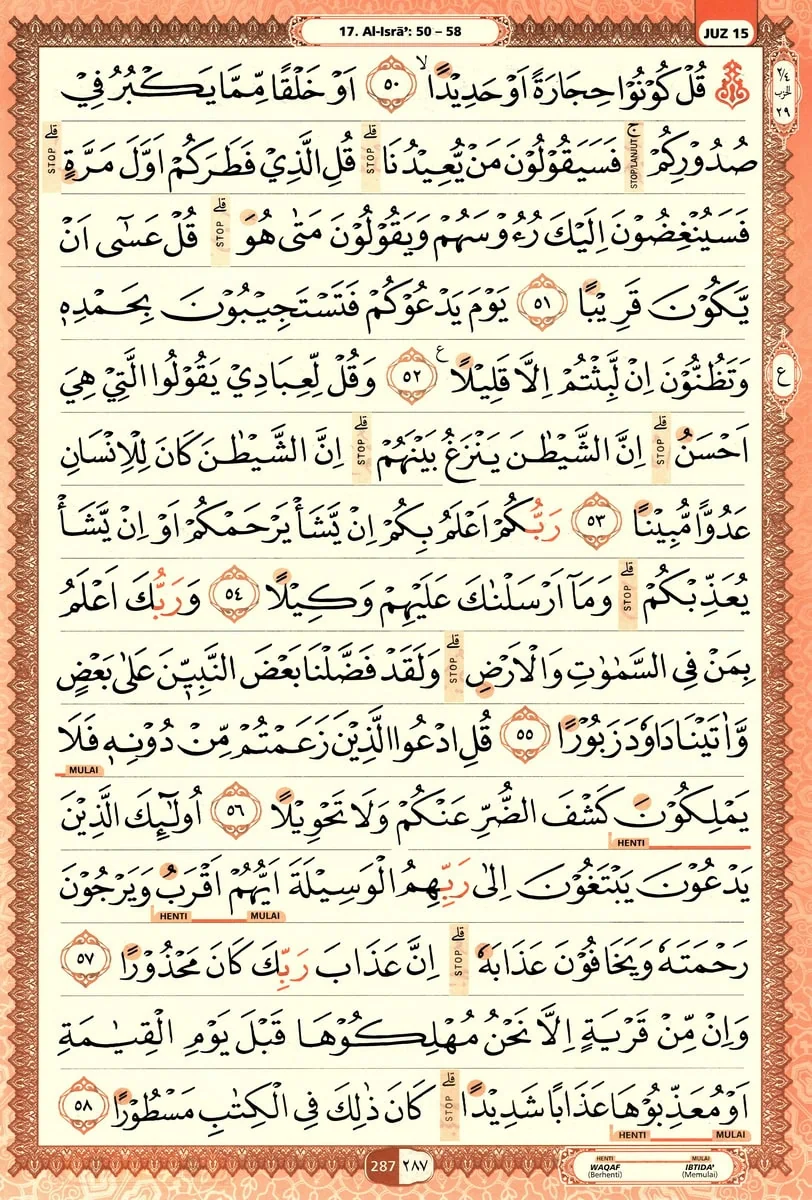 17. Al-Isrā’: 50 – 58
JUZ 15
٢/٤
الحزب
٢٩
قُلْ كُوْنُوْا حِجَارَةً اَوْ حَدِيْدًاۙ ٥٠ اَوْ خَلْقًا مِّمَّا يَكْبُرُ فِيْ
صُدُوْرِكُمْۚ STOP/LANJUT فَسَيَقُوْلُوْنَ مَنْ يُّعِيْدُنَاۗ STOP قُلِ الَّذِيْ فَطَرَكُمْ اَوَّلَ مَرَّةٍۗ STOP
فَسَيُنْغِضُوْنَ اِلَيْكَ رُءُوْسَهُمْ وَيَقُوْلُوْنَ مَتٰى هُوَۗ STOP قُلْ عَسٰٓى اَنْ
يَّكُوْنَ قَرِيْبًا ٥١ يَوْمَ يَدْعُوْكُمْ فَتَسْتَجِيْبُوْنَ بِحَمْدِهٖ
وَتَظُنُّوْنَ اِنْ لَّبِثْتُمْ اِلَّا قَلِيْلًا ࣖ ٥٢ وَقُلْ لِّعِبَادِيْ يَقُوْلُوا الَّتِيْ هِيَ
ع
اَحْسَنُۗ STOP اِنَّ الشَّيْطٰنَ يَنْزَغُ بَيْنَهُمْۗ STOP اِنَّ الشَّيْطٰنَ كَانَ لِلْاِنْسَانِ
عَدُوًّا مُّبِيْنًا ٥٣ رَبُّكُمْ اَعْلَمُ بِكُمْ اِنْ يَّشَأْ يَرْحَمْكُمْ اَوْ اِنْ يَّشَأْ
يُعَذِّبْكُمْۗ STOP وَمَآ اَرْسَلْنٰكَ عَلَيْهِمْ وَكِيْلًا ٥٤ وَرَبُّكَ اَعْلَمُ
بِمَنْ فِى السَّمٰوٰتِ وَالْاَرْضِۗ STOP وَلَقَدْ فَضَّلْنَا بَعْضَ النَّبِيّٖنَ عَلٰى بَعْضٍ
وَّاٰتَيْنَا دَاوٗدَ زَبُوْرًا ٥٥ قُلِ ادْعُوا الَّذِيْنَ زَعَمْتُمْ مِّنْ دُوْنِهٖ فَلَا
MULAI
يَمْلِكُوْنَ كَشْفَ الضُّرِّ عَنْكُمْ وَلَا تَحْوِيْلًا ٥٦ اُولٰۤىِٕكَ الَّذِيْنَ
HENTI
يَدْعُوْنَ يَبْتَغُوْنَ اِلٰى رَبِّهِمُ الْوَسِيْلَةَ اَيُّهُمْ اَقْرَبُ وَيَرْجُوْنَ
MULAI HENTI
رَحْمَتَهٗ وَيَخَافُوْنَ عَذَابَهٗۗ STOP اِنَّ عَذَابَ رَبِّكَ كَانَ مَحْذُوْرًا ٥٧
وَاِنْ مِّنْ قَرْيَةٍ اِلَّا نَحْنُ مُهْلِكُوْهَا قَبْلَ يَوْمِ الْقِيٰمَةِ
اَوْ مُعَذِّبُوْهَا عَذَابًا شَدِيْدًاۗ STOP كَانَ ذٰلِكَ فِى الْكِتٰبِ مَسْطُوْرًا ٥٨
MULAI HENTI
287 ٢٨٧
HENTI MULAI
WAQAF IBTIDA'
(Berhenti) (Memulai)